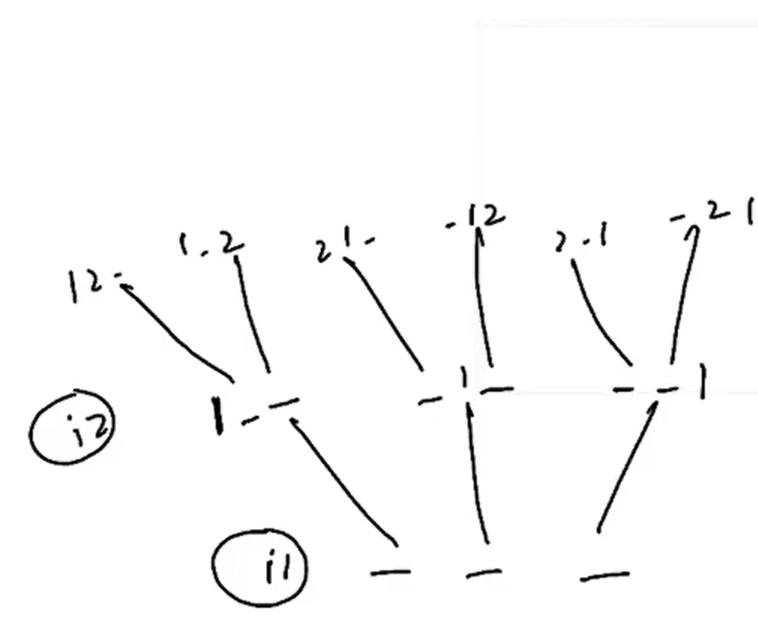 12- 1-2 21- -12 2-1 -21
i2 1-- -1- --1
i1 - - -